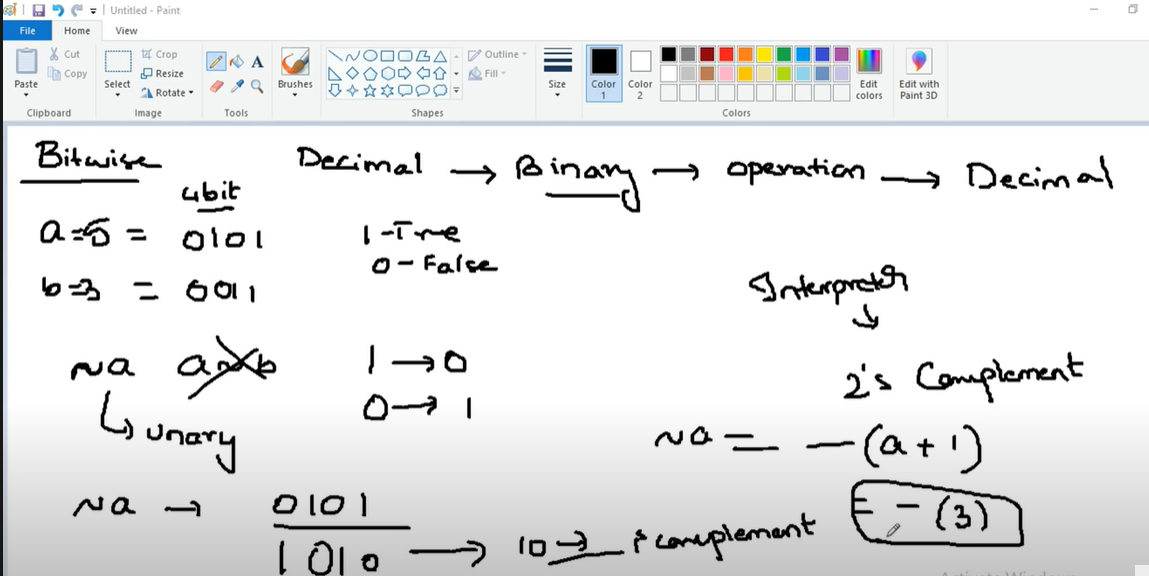 Untitled - Paint
File Home View
Paste
Cut
Copy
Clipboard
Select
Crop
Resize
Rotate
Image
A
Tools
Brushes
Shapes
Outline
Fill
Size
Color 1
Color 2
Colors
Edit colors
Edit with Paint 3D
Bitwise
Decimal → Binary → operation → Decimal
4bit
a=5 = 0101
b=3 = 0011
1 - True
0 - False
Interpreter
↓
2's Complement
~a a~b
1 → 0
0 → 1
unary
~a = -(a+1)
= -(3)
~a → 0101
1010 → 10 → complement